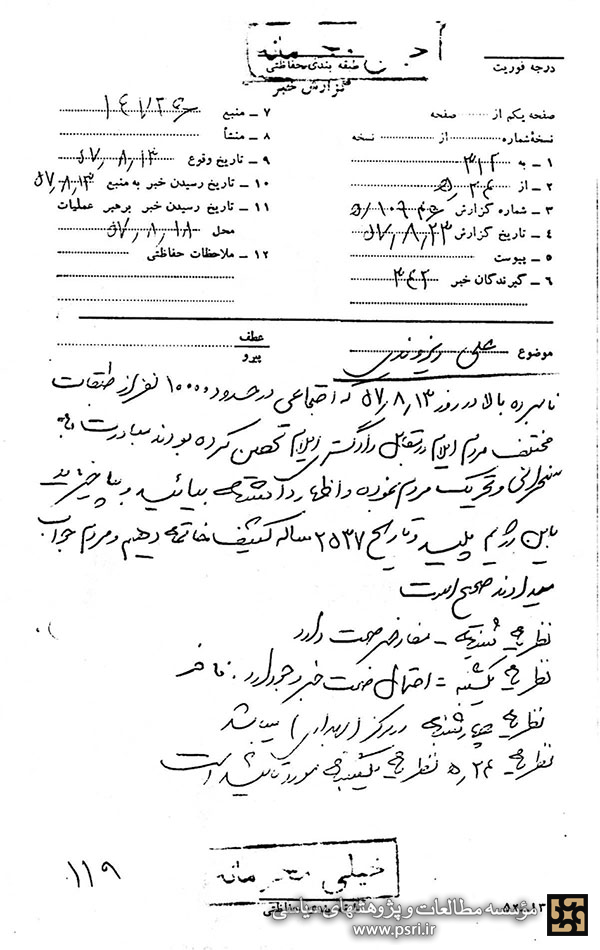 طبقه بندی حفاظتی
درجه فوریت
گزارش خبر
صفحه یکم از صفحه
نسخه شماره از نسخه
۱ – به ۳۱۲
۲ – از ۵ر۲۴
۳ – شماره گزارش
۴ – تاریخ گزارش ۵۷٫۸٫۲۳
۵ – پیوست
۶ – گیرندگان خبر ۳۴۲
۷ – منبع
۸ – منشأ
۹ – تاریخ وقوع ۵۷٫۸٫۱۳
۱۰ – تاریخ رسیدن خبر به منبع ۵۷٫۸٫۱۳
۱۱ – تاریخ رسیدن خبر برهبر عملیات
محل ۵۷٫۸٫۱۸
۱۲ – ملاحظات حفاظتی
موضوع علی
عطف
پیرو
نامبرده بالا در روز ۵۷٫۸٫۱۳ که اجتماعی در حدود ۱۰۰۰۰ نفر از طبقات
مختلف مردم ایلام در مقابل دادگستری ایلام تحصن کرده بودند مبادرت به
سخنرانی و تحریک مردم نموده و اظهار داشته بیائید و بپاخیزید
باین رژیم پلید و تاریخ ۲۵۳۷ ساله کثیف خاتمه دهیم و مردم جواب
میدادند صحیح است
نظریه شنبه – مفاد خبر صحت دارد
نظریه یکشنبه = احتمال صحت خبر وجود دارد.
نظریه چهارشنبه در مرکز ( ) میباشد
نظریه ۵ر۲۴ نظریه یکشنبه مورد تائید است
خیلی محرمانه
۱۱۹
مؤسسه مطالعات و پژوهشهای سیاسی
www.psri.ir